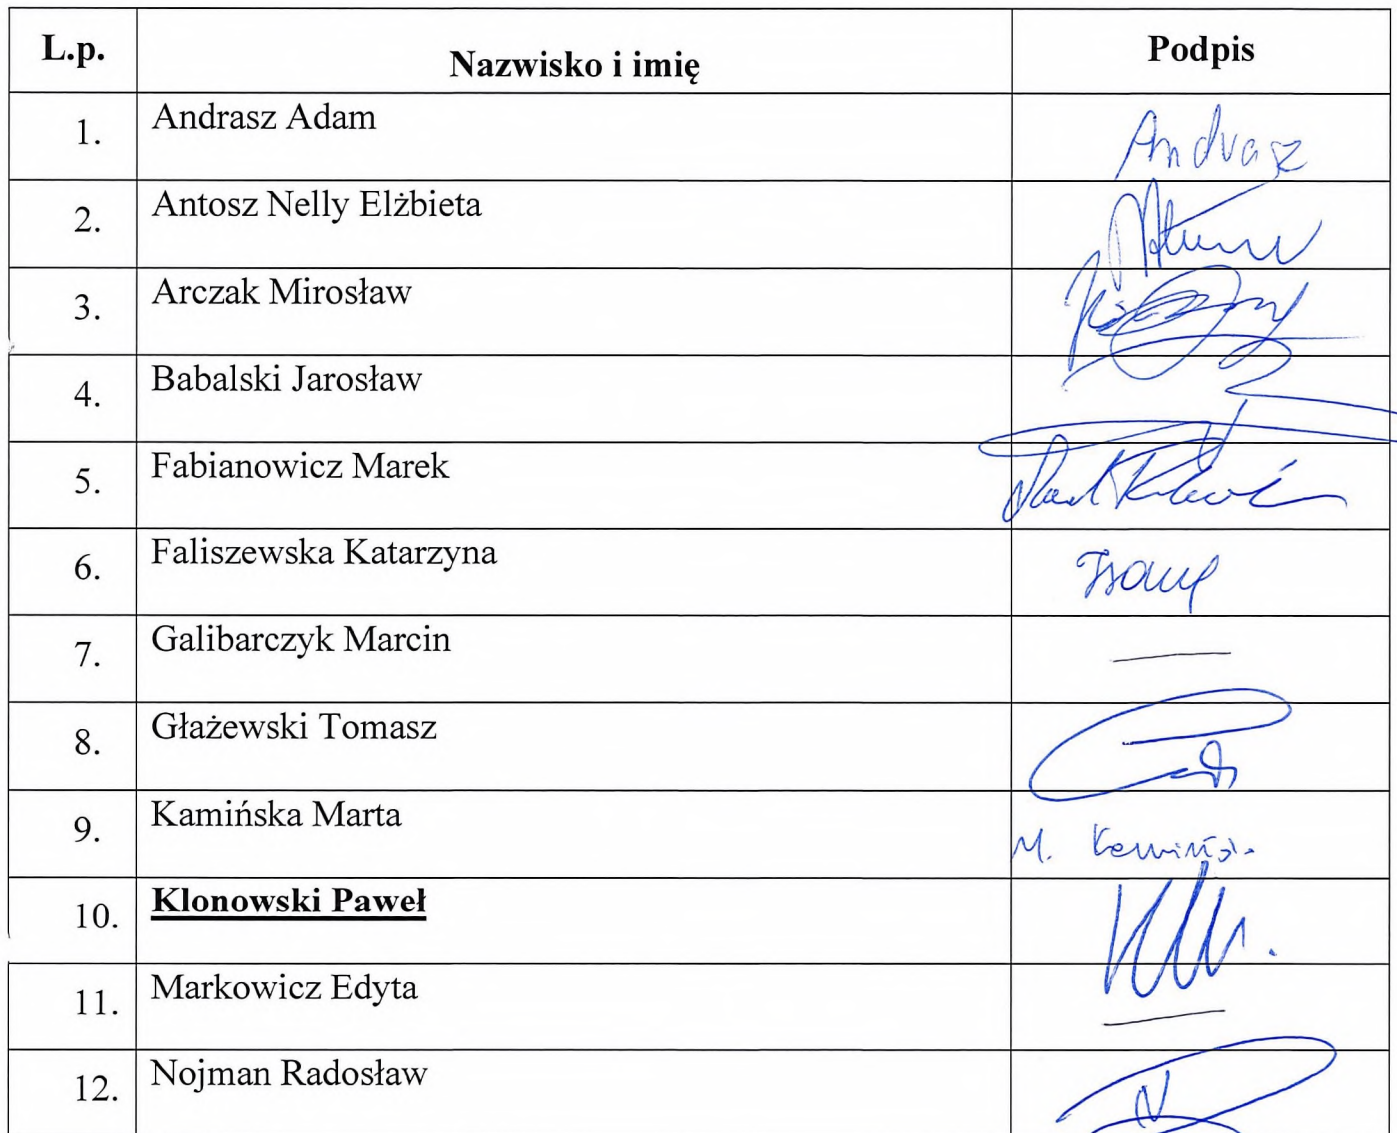 L.p. Nazwisko i imię Podpis
1. Andrasz Adam Andrasz
2. Antosz Nelly Elżbieta
3. Arczak Mirosław
4. Babalski Jarosław
5. Fabianowicz Marek
6. Faliszewska Katarzyna
7. Galibarczyk Marcin
8. Głażewski Tomasz
9. Kamińska Marta M. Kamińska
10. Klonowski Paweł
11. Markowicz Edyta
12. Nojman Radosław